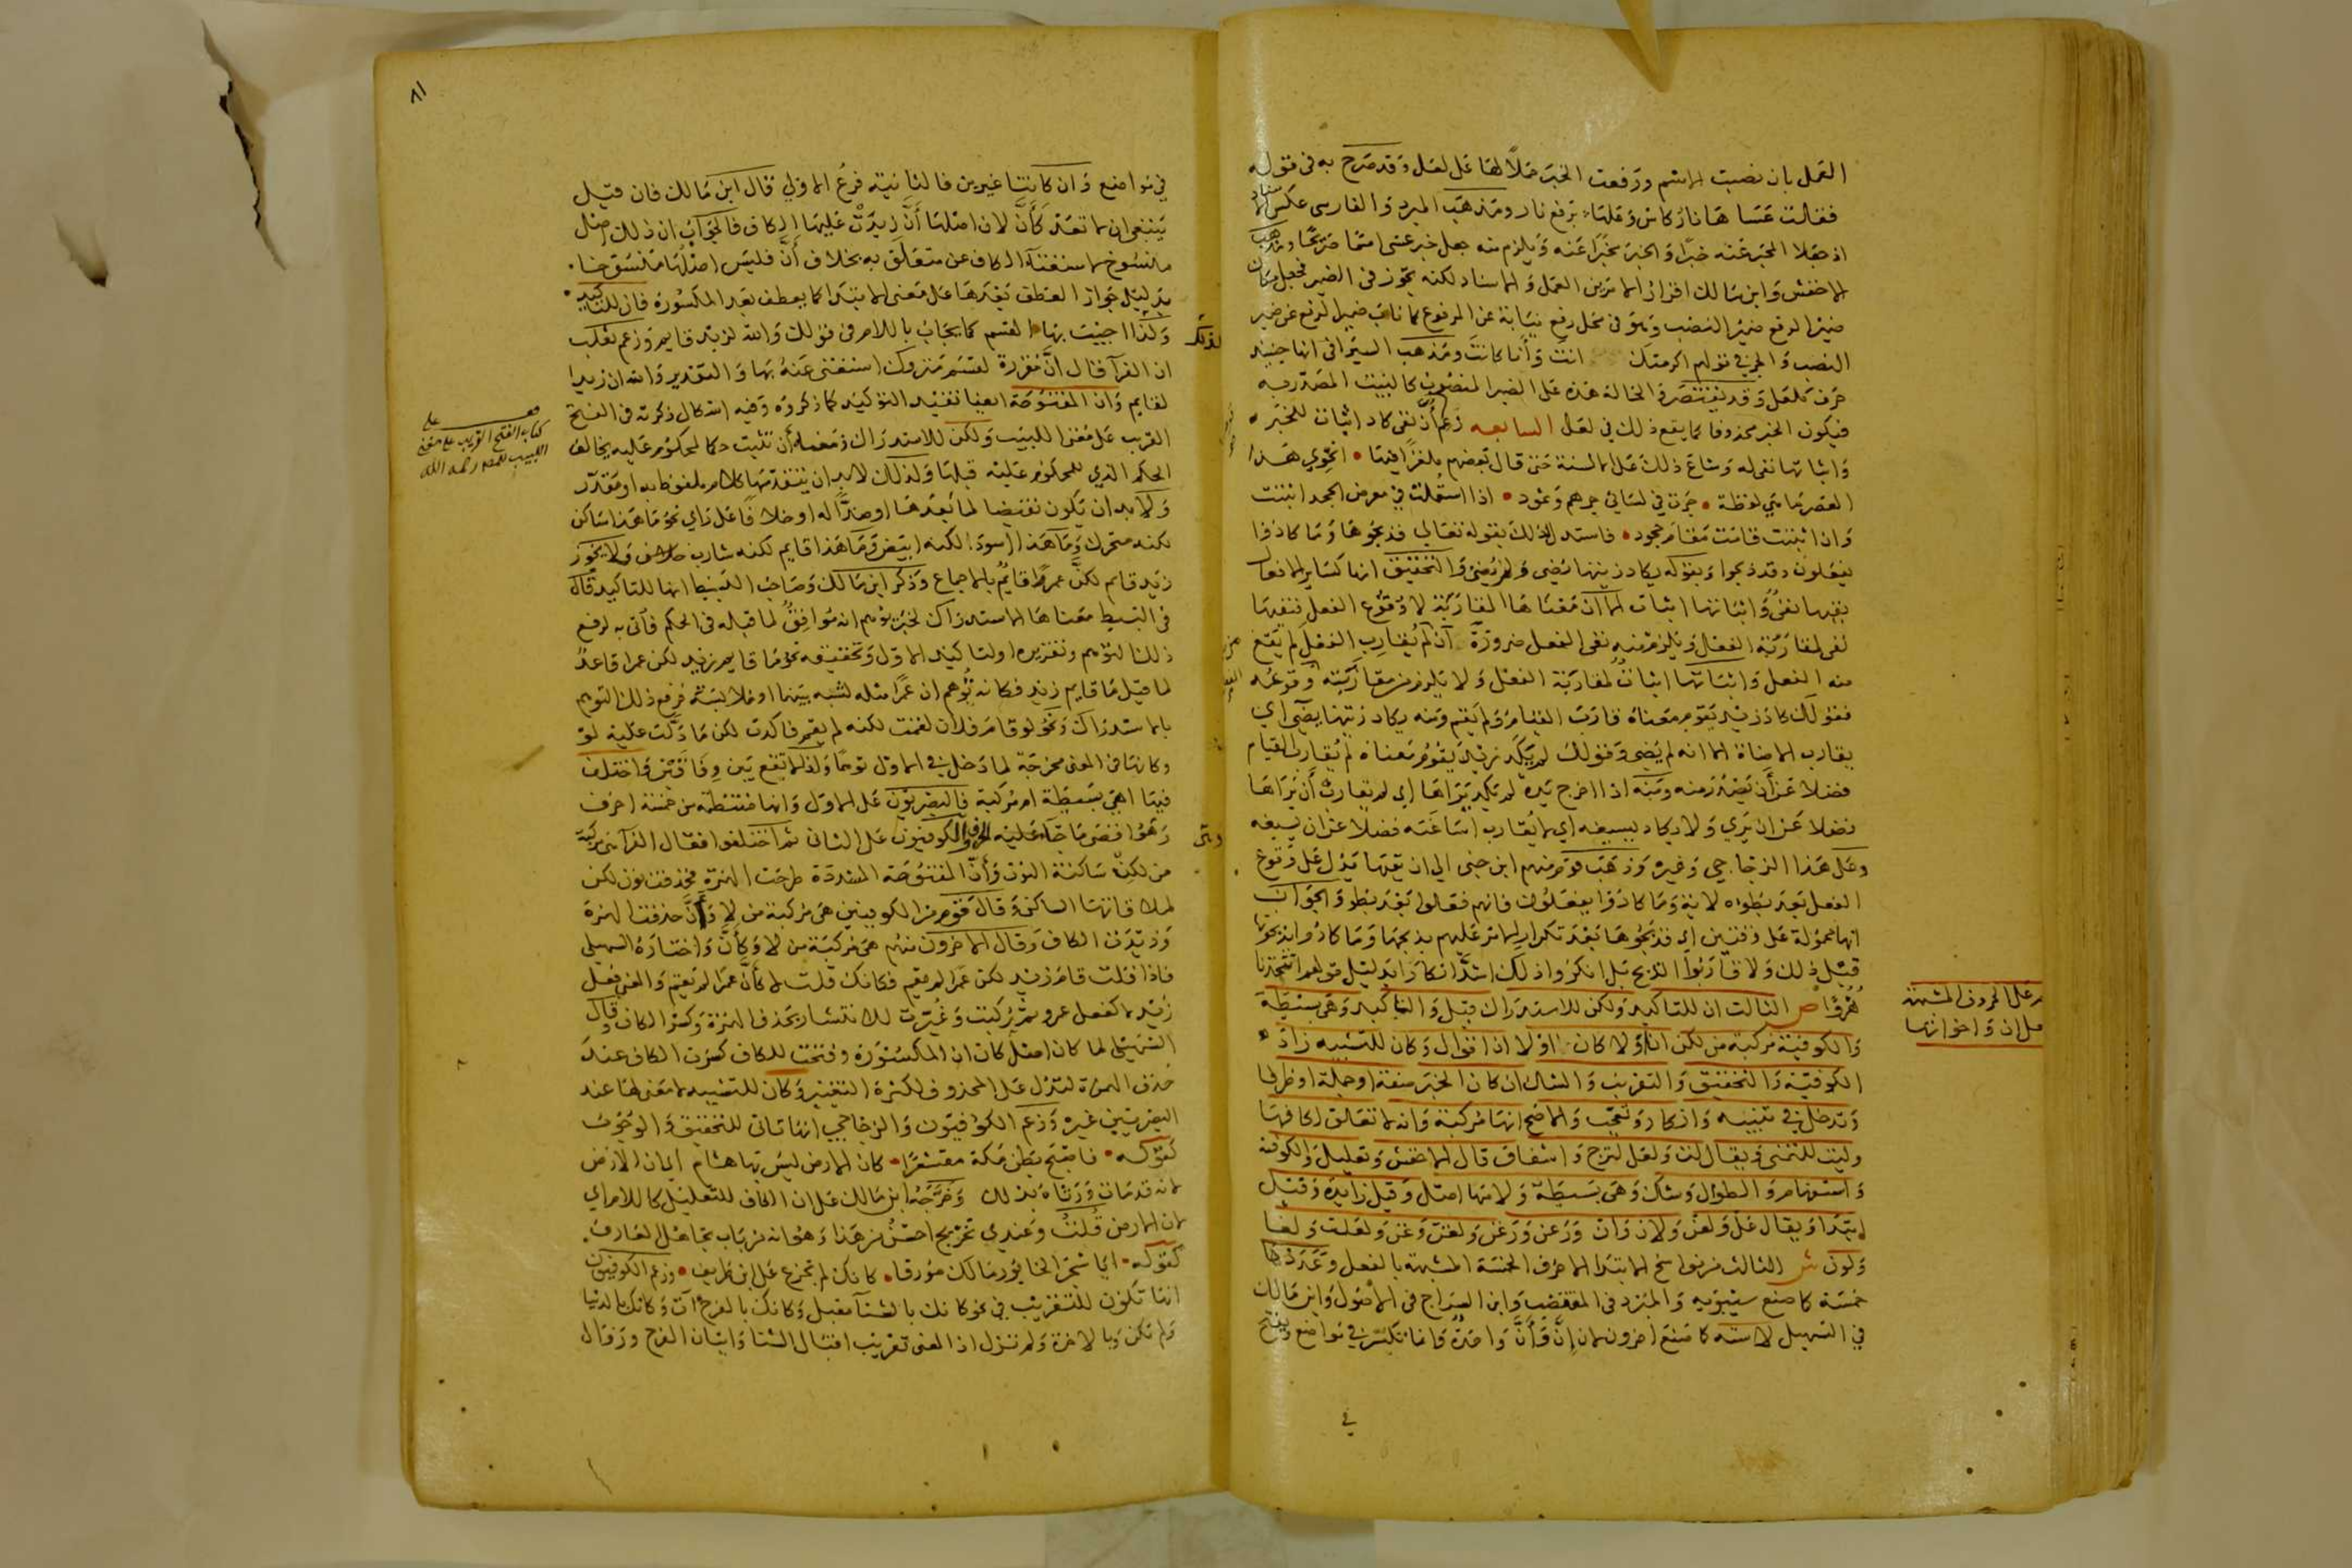 العمل بان نصبت الاسم ورفعت الخبر حملا لها على لعل وقد صرح به في قوله
فقلت عساها نار كاس وعلها، برفع نار ومذهب المبرد والفارسي عكس الاسناد
اذ جعلا المخبر عنه خبرا والخبر مخبرا عنه ويلزم منه جعل خبر عسى اسما صريحا ومذهب
الاخفش وابن مالك اقرار الامرين العمل والاسناد لكنه تجوز في الضمير فجعل مكان
ضمير الرفع ضمير النصب وهو في محل رفع نيابة عن المرفوع كما ناب ضمير الرفع عن ضمير
النصب والجر في قولهم اكرمتك انت وأنا كانت ومذهب السيرافي انها حينئذ
حرف كلعل وقد يقتصر في الحالة هذه على الضمير المنصوب كالبيت المصدر به
فيكون الخبر محذوفا كما يقع ذلك في لعل السابعه زعم أن نفي كاد اثبات للخبر
واثباتها نفي له وشاع ذلك على الالسنة حتى قال بعضهم ملغزا فيها • انحوي هذا
العصر ما هي لفظة • جرت في لساني جرهم وثمود • اذا استعملت في معرض الجحد اثبتت
وان اثبتت قامت مقام جحود • فاستدل لذلك بقوله تعالى فذبحوها وما كادوا
يفعلون وقد ذبحوا وبقوله يكاد زيتها يضي ولم يضئ والتحقيق انها كساير الافعال
نفيها نفي واثباتها اثبات الا ان معناها المقاربة لا وقوع الفعل فنفيها
نفي لمقاربة الفعل ويلزم منه نفي الفعل ضرورة أن من لم يقارب الفعل لم يقع
منه الفعل واثباتها اثبات لمقاربة الفعل ولا يلزم من مقاربته وقوعه
فقولك كاد زيد يقوم معناه قارب القيام ولم يقم ومنه يكاد زيتها يضئ اي
يقارب الاضاة الا انه لم يضئ وقولك لم يكد زيد يقوم معناه لم يقارب القيام
فضلا عن أن يصدر منه ومنه اذا اخرج يده لم يكد يراها اي لم يقارب أن يراها
فضلا عن ان يري ولا يكاد يسيغه اي لا يقارب اساغته فضلا عن ان يسيغه
وعلى هذا الزجاجي وغيره وذهب قوم منهم ابن جني الي ان نفيها يدل على وقوع
الفعل بعد بطوء لاية وما كادوا يفعلون فانهم فعلوا بعد بطؤ والجواب
انها محمولة على وقتين اي فذبحوها بعد تكرار الامر عليهم بذبحها وما كادوا يذبحونها
قبل ذلك ولا قاربوا الذبح بل انكروا ذلك اشد انكار بدليل قولهم اتتخذنا
هزؤا ص الثالث ان للتاكيد ولكن للاستدراك قيل والتاكيد وهي بسيطة
والكوفية مركبة من لكن ان او لا كان او لا ان اقوال وكان للتشبيه زاد
الكوفية والتحقيق والتقريب والشك ان كان الخبر صفة او جملة او ظرفا
وتدخل في تنبيه وانكار وتعجب والاصح انها مركبة وانه لا تتعلق كافها
وليت للتمني ويقال لت ولعل لترج واشفاق قال الاخفش وتعليل والكوفية
واستفهام والطوال وشك وهي بسيطة ولامها اصل وقيل زايدة وقيل
ابتدا ويقال عل ولعن ولأن وان ورعن ورغن ولغن وغن ولعلت ولعا
ولون ش الثالث من نواسخ الابتدا الاحرف الخمسة المشبهة بالفعل وعددها
خمسة كما صنع سيبويه والمبرد في المقتضب وابن السراج في الاصول وابن مالك
في التسهيل لا ستة كما صنع اخرون لان إن وأن واحدة وانما تكسر في مواضع وتفتح
في
على الاحرف المشبهة
ان واخواتها
٨١
في مواضع وان كانتا غيرين فالثانية فرع الاولي قال ابن مالك فان قيل
ينبغي ان لا تعد كأن لان اصلها أن زيدت عليها الكاف فالجواب ان ذلك اصل
منسوخ لاستغنآ الكاف عن متعلق به بخلاف أن فليس اصلها منسوخا.
بدليل جواز العطف بعدها على معنى الابتدا كما يعطف بعد المكسورة فان للتاكيد
ولذا اجيب بها القسم كما يجاب باللام في قولك والله لزيد قايم وزعم ثعلب
ان الفرآ قال ان مقررة لقسم متروك استغنى عنه بها والتقدير والله ان زيدا
لقايم وان المفتوحة ايضا تفيد التوكيد كما ذكروه وفيه اشكال ذكرته في الفتح
القريب على مغني اللبيب ولكن للاستدراك ومعناه أن تثبت حكما لمحكوم عليه يخالف
الحكم الذي للمحكوم عليه قبلها ولذلك لابد ان يتقدمها كلام ملفوظ به او مقدر
ولابد ان يكون نقيضا لما بعدها او ضدا له او خلافا على راي نحو ما هذا ساكن
لكنه متحرك وما هذا اسود لكنه ابيض وما هذا قايم لكنه شارب ولا يجوز
زيد قايم لكن عمرا قايم بالاجماع وذكر ابن مالك وصاحب البسيط انها للتاكيد قال
في البسيط معناها الاستدراك لخبر يوهم انه موافق لما قبله في الحكم فاتي به لرفع
ذلك التوهم وتقريره او لتاكيد الاول وتحقيقه نحو ما قايم زيد لكن عمرا قاعد
لما قيل ما قايم زيد فكانه توهم ان عمرا مثله لشبه بينهما او ملابسة فرفع ذلك التوهم
بالاستدراك ونحو لو قام فلان لقمت لكنه لم يقم فاكدت لكن ما دلت عليه لو
وكانها في المعنى مخرجة لما دخل في الاول توهما ولذلك لا تقع بين وفاقين واختلف
فيها اهي بسيطة ام مركبة فالبصريون على الاول وانها منتظمة من خمسة احرف
وهو اقصى ما جآ عليه الحرف والكوفيون على الثاني ثم اختلفوا فقال الفرآ هي مركبة
من لكن ساكنة النون وأن المفتوحة المشددة طرحت الهمزة فحذفت نون لكن
لملاقاتها الساكن وقال قوم من الكوفيين هي مركبة من لا وأن حذفت الهمزة
وزيدت الكاف وقال الاخرون منهم هي مركبة من لا وكأن واختاره السهيلي
فاذا قلت قام زيد لكن عمرا لم يقم فكانك قلت لا كأن عمرا لم يقم والمعنى فعل
زيد لا كفعل عمرو ثم ركبت وغيرت للانتشار بحذف الهمزة وكسر الكاف وقال
السهيلي لما كان اصل كان ان المكسورة وفتحت للكاف كسرت الكاف عند
حذف الهمزة لتدل على المحذوف لكثرة التغيير وكان للتشبيه لا معنى لها عند
البصريين غيره وزعم الكوفيون والزجاجي انها تاتي للتحقيق والوجوب
كقوله • فاصبح بطن مكة مقشعرا • كان الارض ليس بها هشام اي لان الارض
لانه قد مات ورثاه بذلك وخرجه ابن مالك على ان الكاف للتعليل كاللام اي
لان الارض قلت وعندي تخريج احسن من هذا وهو انه من باب تجاهل العارف.
كقوله • ايا شجر الخابور مالك مورقا • كانك لم تجزع على ابن طريف • وزعم الكوفيون
انها تكون للتقريب في نحو كانك بالشتآ مقبل وكانك بالفرج آت وكانك بالدنيا
ولم تكن وبالاخرة ولم تزل اذ المعنى تقريب اقبال الشتا واتيان الفرج وزوال
لذلك
كتاب الفتح القريب على مغني
اللبيب للمص رحمه الله